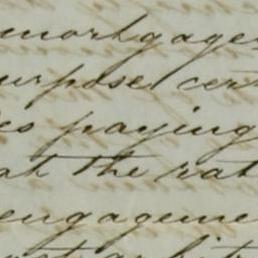 mortgages
urpose cer
es paying
at the rat
engageme